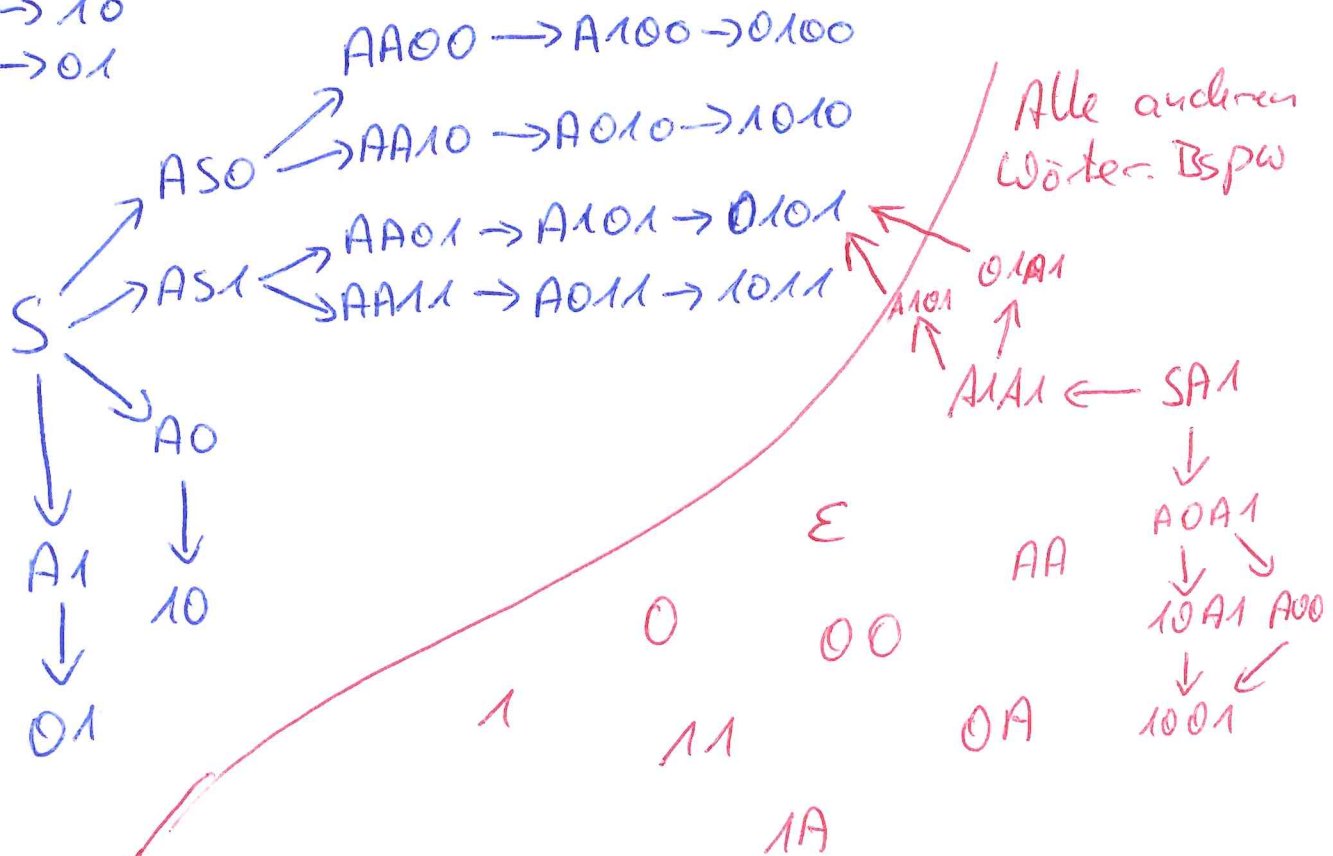 → 10
→ 01
AA00 → A100 → 0100
AA10 → A010 → 1010
AS0
AA01 → A101 → 0101
AS1
AA11 → A011 → 1011
S
A0
A1
10
01
Alle anderen
Wörter. Bspw
01A1
A101
A1A1 ← SA1
A0A1
10A1 A00
1001
ε
AA
0
00
1
11
0A
1A